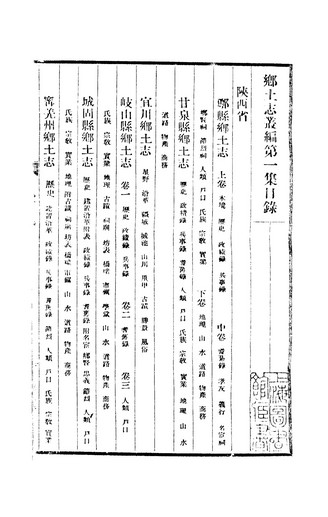 鄉土志叢編第一集目錄
陝西省
鄠縣鄉土志 上卷 本境 歷史 政績錄 兵事錄 中卷 耆舊錄 孝友 義行 名宦祠
鄉賢祠 人類 戶口 氏族 宗教 實業 下卷 地理 山 水 道路 物產 商務
甘泉縣鄉土志 歷史 政績錄 兵事錄 耆舊錄 人類 戶口 氏族 宗教 實業 地理 山 水
道路 物產 商務
宜川鄉土志 星野 沿革 疆域 城池 山川 里甲 古蹟 勝景 風俗
岐山縣鄉土志 卷一 歷史 政績錄 兵事錄 卷二 耆舊錄 卷三 人類 戶口
氏族 宗教 實業 地理 古蹟 祠廟 坊表 橋樑 市鎮 學堂 山 水 道路 物產 商務
城固縣鄉土志 歷史 建置沿革 政績錄 兵事錄 耆舊錄 人類 戶口
氏族 宗教 實業 地理 古蹟 祠廟 坊表 橋樑 市鎮 山 水 道路 物產 商務
寧羌州鄉土志 歷史 建置沿革 政績錄 兵事錄 耆舊錄 人類 戶口 氏族 宗教 實業